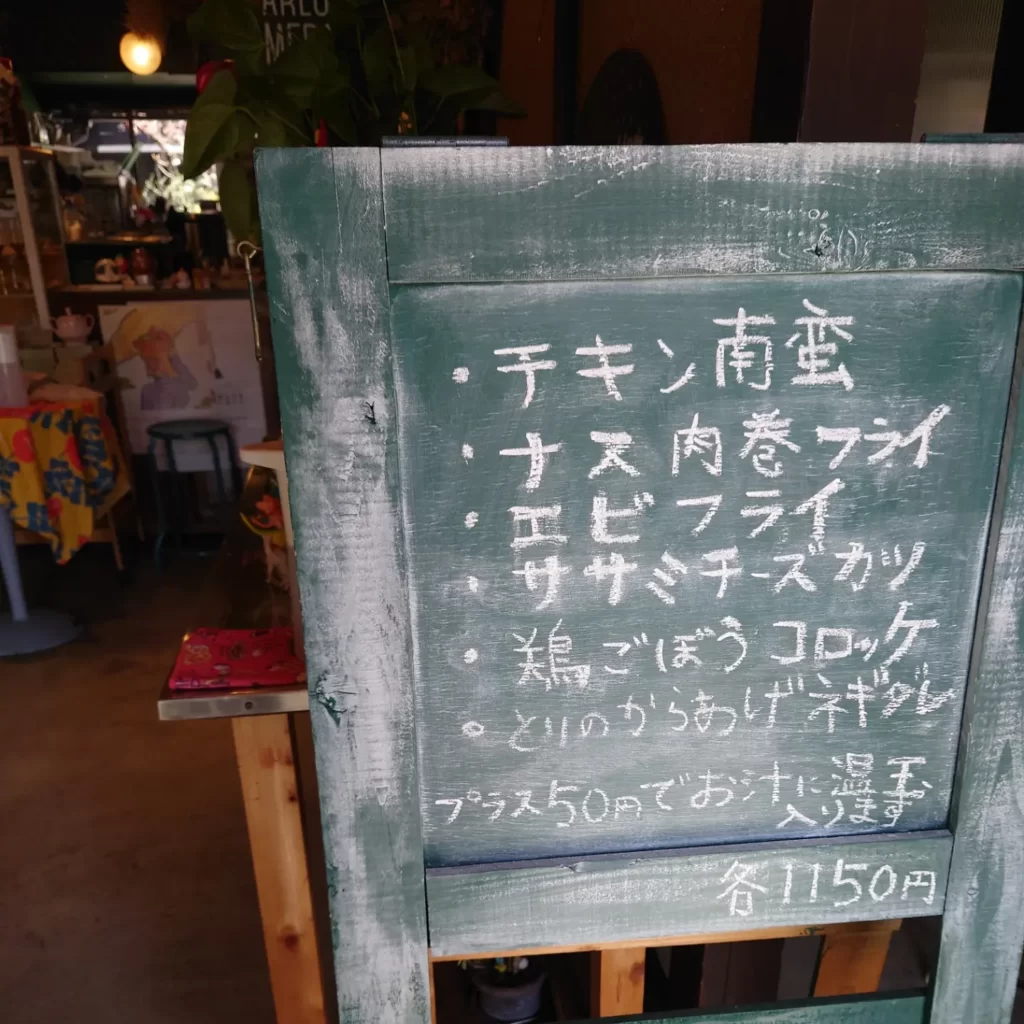 ・チキン南蛮
・ナス肉巻フライ
・エビフライ
・ササミチーズカツ
・鶏ごぼうコロッケ
・とりのからあげネギダレ
プラス50円でお汁に温玉
入ります
各1150円